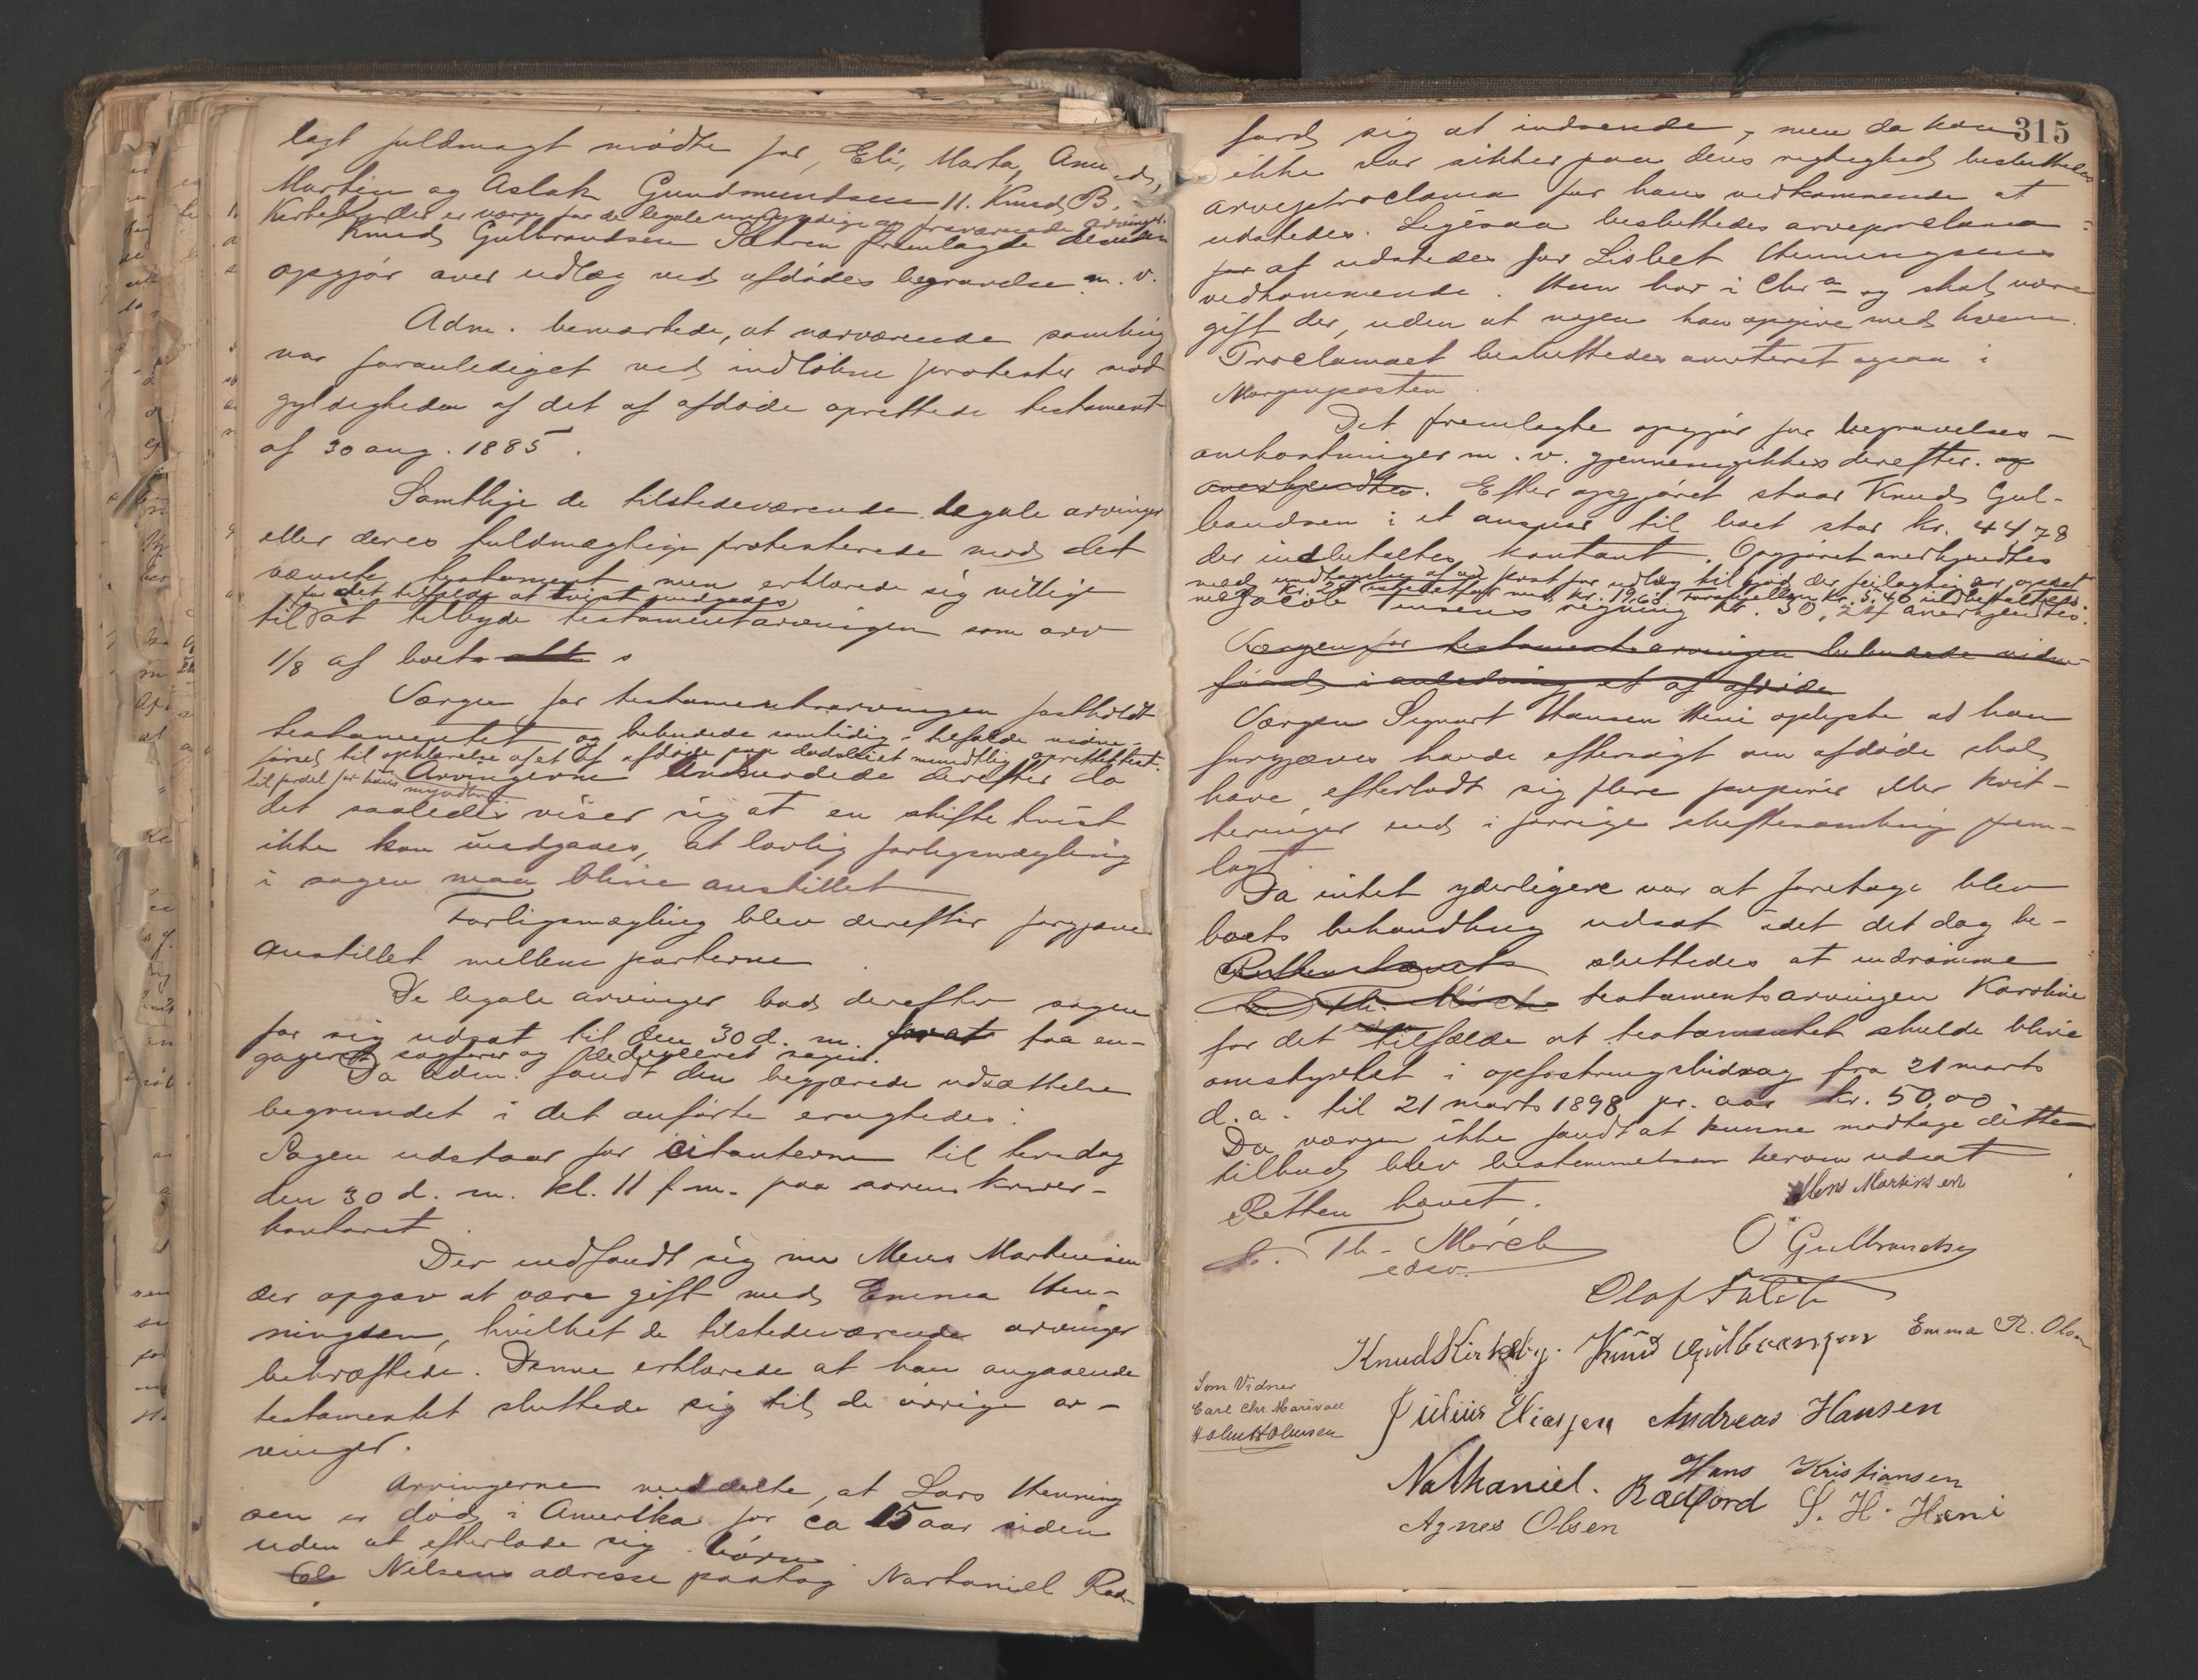 lagt fuldmagt mødte for, Eli, Marta, Amunds,
Martin og Aslak Gundmundsen 11. Knud B.
Kirkeby der er værge for de legale umyndige og fraværende arvinger.
Knud Gulbrandsen Sætren fremlagde desuden
opgjør over udlæg ved afdødes begravelse m. v.
Adm. bemærkede, at nærværende samling
var foranlediget ved indløbne protester mod
gyldigheden af det af afdøde oprettede testament
af 30 aug. 1885.
Samtlige de tilstedeværende legale arvinger
eller deres fuldmægtige protesterede mod det
nævnte testament men erklærede sig villige
for det tilfælde at tvist undgaaes
til at tilbyde testamentarvingen som arv
1/8 af boets
Værgen for testamentsarvingen fastholdt
testamentet og bebudede samtidig i tilfælde vidne-
førsel til oplysning af et af afdøde paa dødsleiet mundtlig oprettet test.
til fordel for hans myndling
Arvingerne derefter da
det saaledes viser sig at en skiftetvist
ikke kan undgaaes, at lovlig forligsmægling
i sagen maa blive anstillet
Forligsmægling blev derefter forgjæves
anstillet mellem parterne
De legale arvinger bad derefter sagen
for sig udsat til den 30 d. m. for at faa en-
gageret sagfører og deduceret sagen.
Da adm. fandt den begjærede udsættelse
begrundet i det anførte eragtedes:
Sagen udstaar for citanterne til torsdag
den 30 d. m. kl. 11 f m. paa sorenskriver-
kontoret.
Der indfandt sig nu Mens Martinsen
der opgav at være gift med Emma Hen-
ningsen, hvilket de tilstedeværende arvinger
bekræftede. Denne erklærede at han angaaende
testamentet sluttede sig til de øvrige ar-
vinger.
Arvingerne meddelte, at Lars Henning
sen er død i Amerika for ca 15 aar siden
uden at efterlade sig børn
Ole Nilsens adresse paatog Nathaniel Rad-
315
ford sig at indsende, men da han
ikke var sikker paa dens rigtighed besluttedes
arveproclama for hans vedkommende at
udstedes. Ligesaa besluttedes arveproclama
for at udstedes for Lisbet Henningsens
vedkommende. Hun bor i Chra og skal være
gift der, uden at nogen kan opgive med hvem.
Proclamaet besluttedes averteret ogsaa i
Morgenposten.
Det fremlagte opgjør for begravelses-
omkostninger m. v. gjennemgikkes derefter. og
anerkjendtes. Efter opgjøret staar Knud Gul-
bandsen i et ansvar til boet stor kr. 4478
der indbetaltes kontant. Opgjøret anerkjendtes
med undtagelse af en post for udlæg til der feilagtig var opsat
med kr. 25 istedetfor med kr. 19,60. Forskjellen kr. 5.40 indbetaltes.
Jacob regning kr. 30,24 anerkjendtes.
Værgen for testamentsarvingen bebudede vidne-
førsel i anledning et af afdøde
Værgen Sigvart Hansen Heni oplyste at han
forgjæves havde eftersøgt om afdøde skal
have efterladt sig flere papirer eller kvit-
teringer end i forrige skiftesamling frem-
lagt.
Da intet yderligere var at foretage blev
boets behandling udsat idet det dog be-
Retten hævet sluttedes at indrømme
C. Th. Mørch testamentsarvingen Karoline
for det tilfælde at testamentet skulde blive
omstyrtet i opfostringsbidrag fra 21 marts
d. a. til 21 marts 1898 pr. aar kr. 50,00
Da værgen ikke fandt at kunne modtage dette
tilbud blev bestemmelsen herom udsat
Retten hævet.
Mens Martinsen
Th. Mørch
edsv.
O Gulbrandsen
Olaf
Knud Kirkeby. Knud Gulbransen Emma R. Olsen
Som Vidner
Carl Chr
Julius Eliassen Andreas Hansen
Nathaniel. Radford Hans Kristiansen
Agnes Olsen S. H. Heni